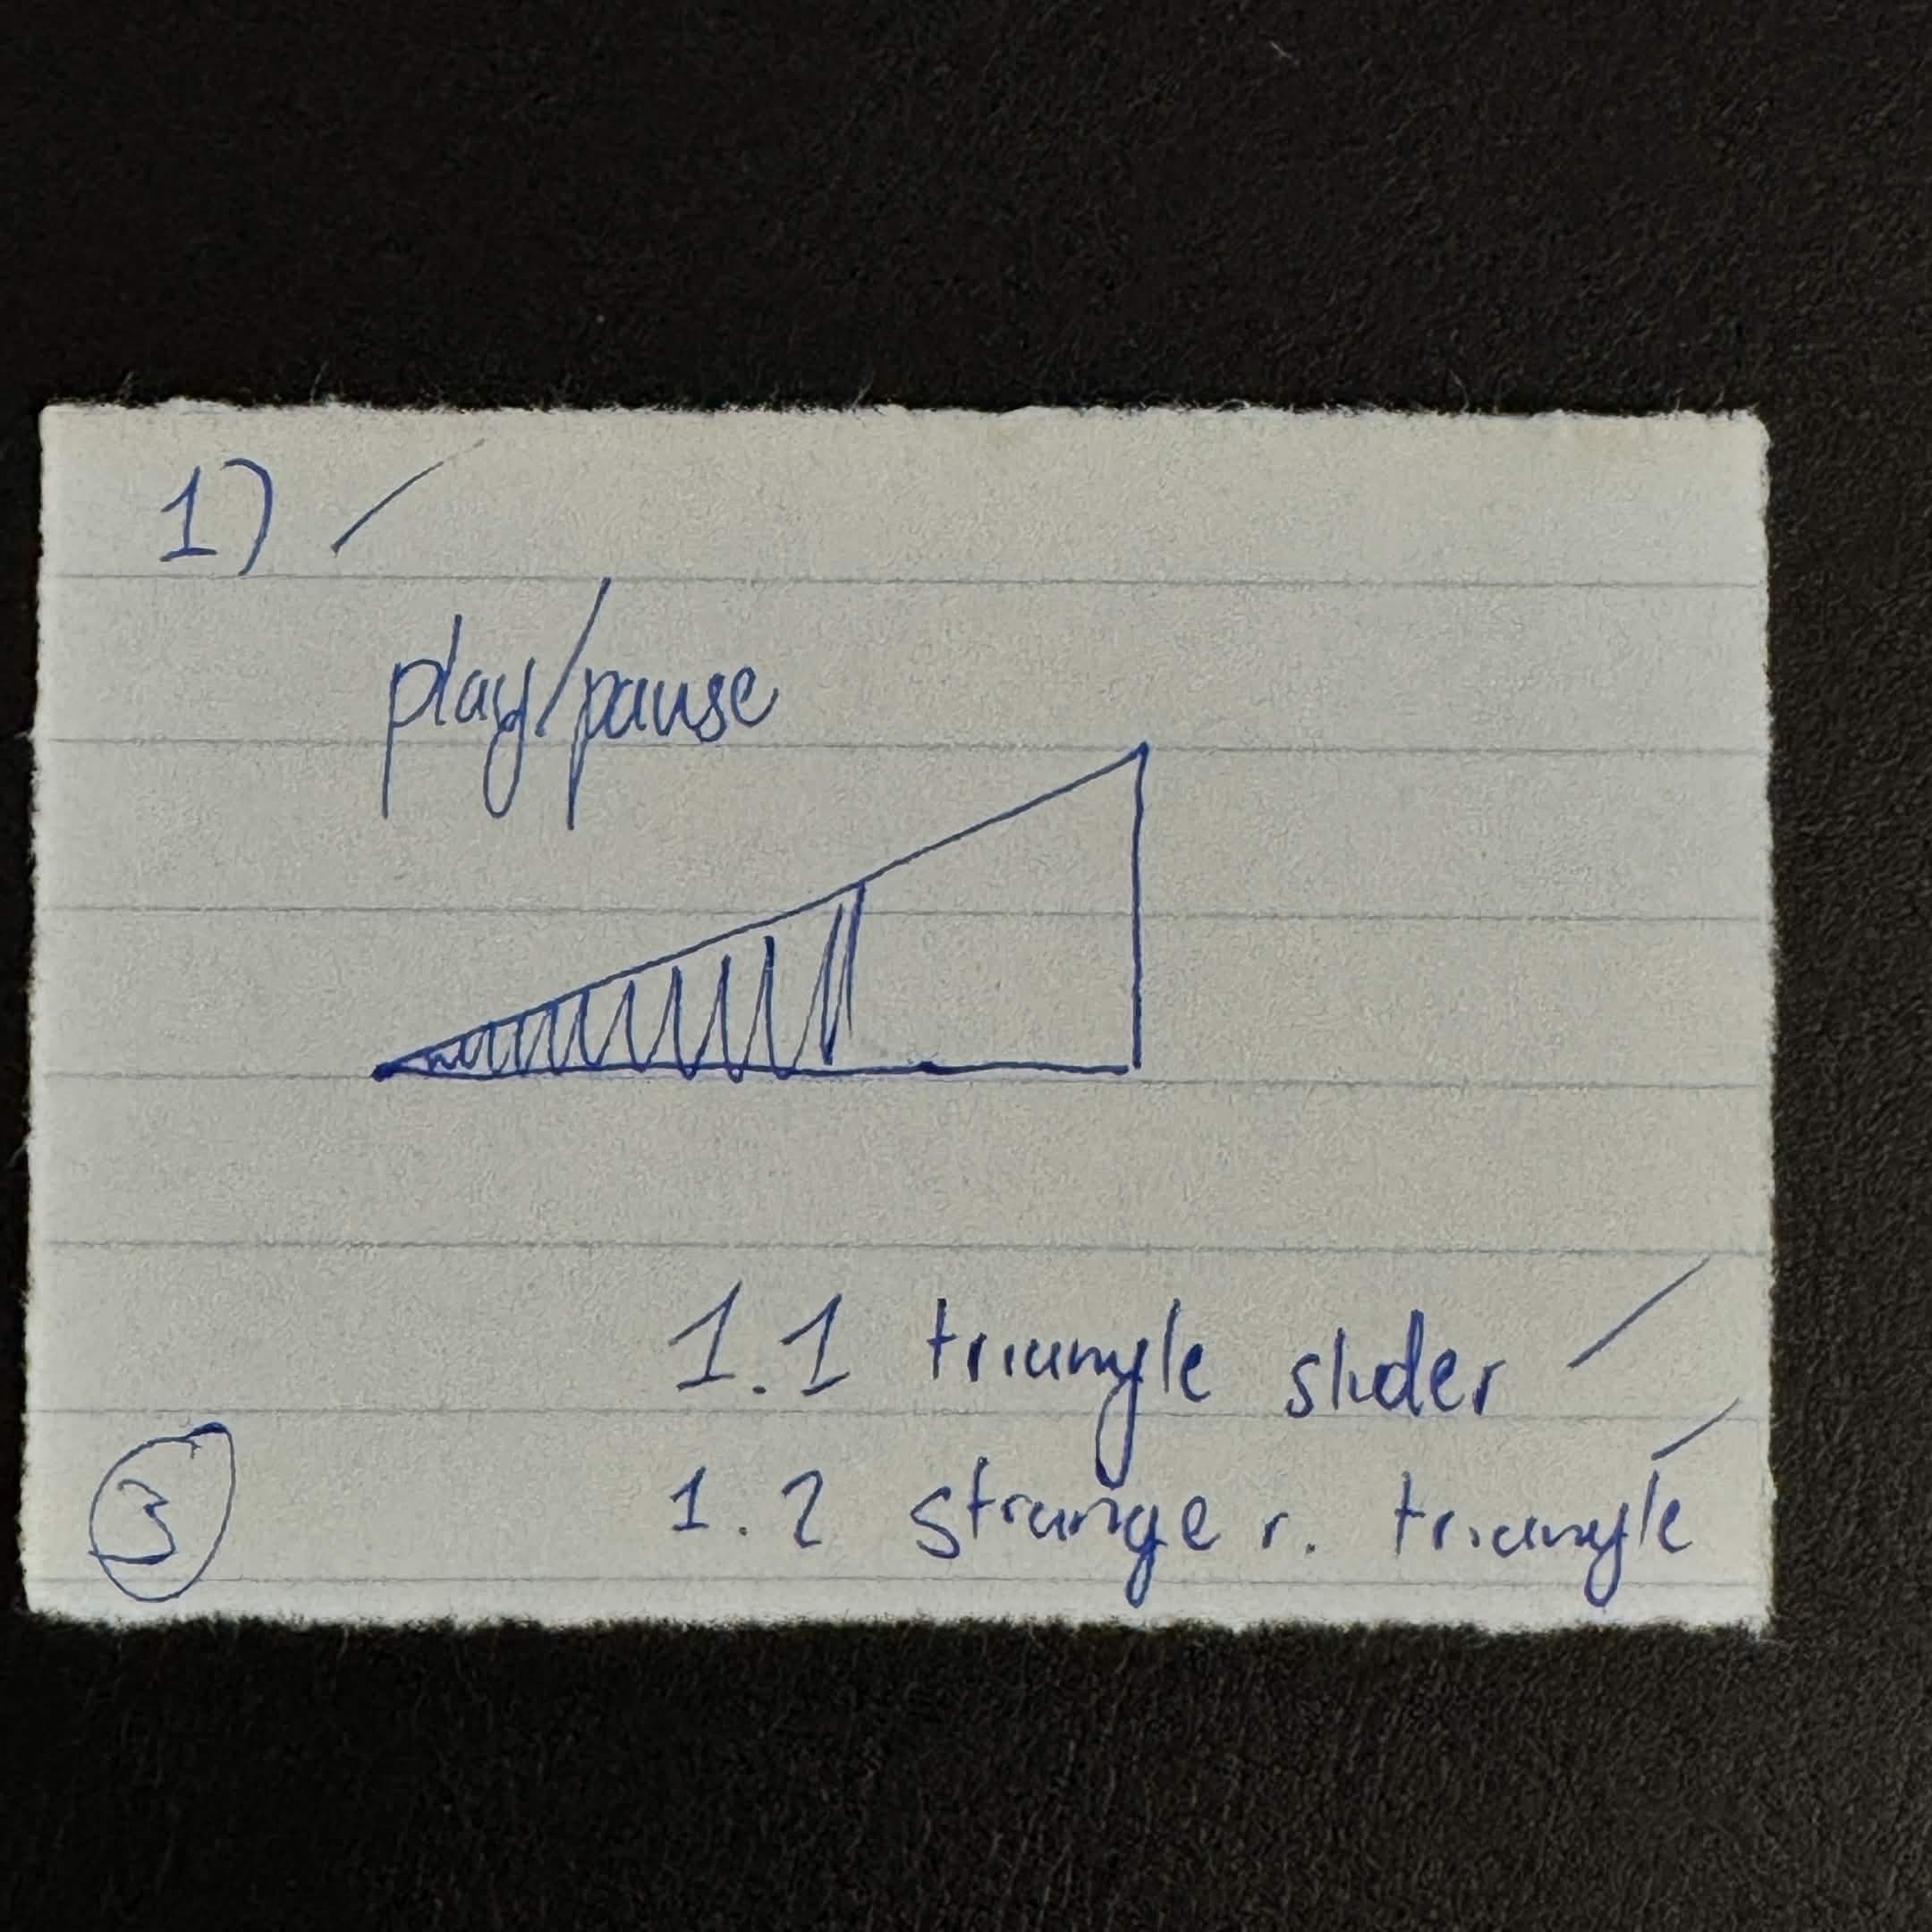 1)
play/pause
1.1 triangle slider
1.2 strange r. triangle
3